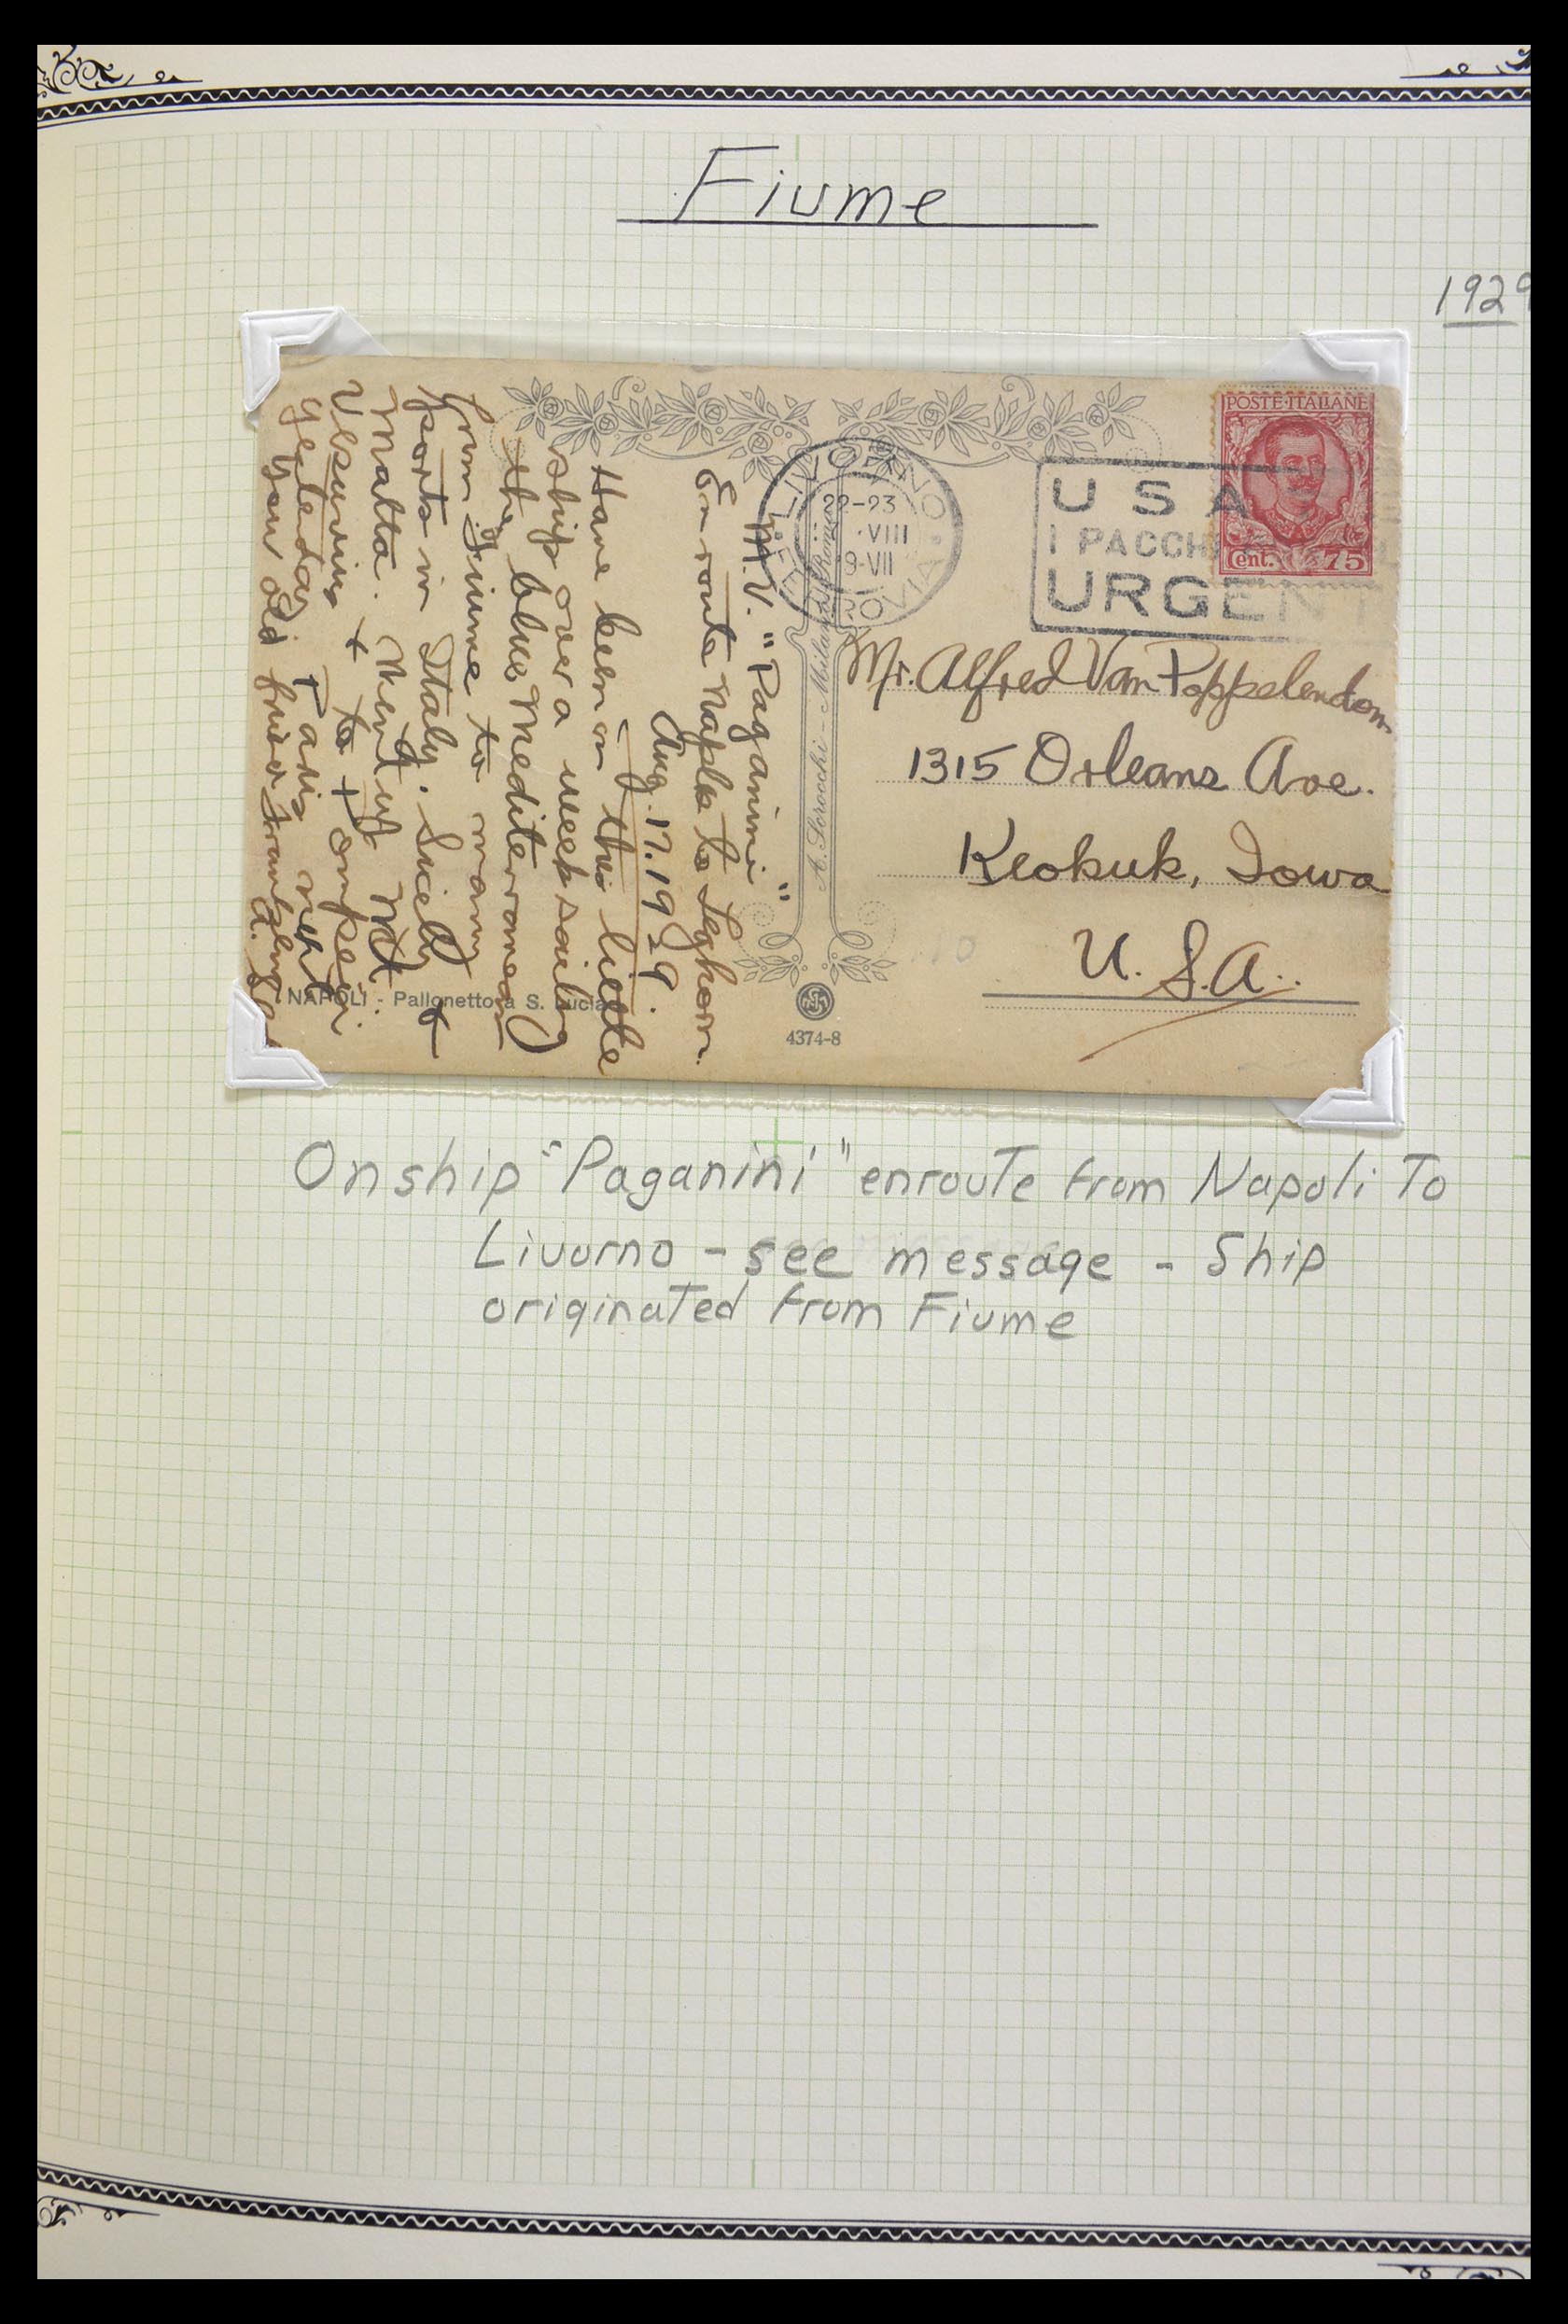 Fiume
1929
POSTE·ITALIANE
Cent. 75
LIVORNO
FERROVIA
22-23
VIII
9-VII
USA
I PACCHI
URGENTI
Mr. Alfred Van Poppelendom
1315 Orleans Ave.
Keokuk, Iowa
U.S.A.
M.V. "Paganini"
En route Naples to Leghorn.
Aug. 17. 1929.
Have been on this little
ship over a week sailing
the blue Mediterranean
from Fiume to many
ports in Italy. Sicily &
Malta. Went up Mt.
Vesuvius & to Pompeii
yesterday. Paris next.
Your old friend
A. Scrocchi - Milano
NAPOLI - Pallonetto a S. Lucia
4374-8
On ship "Paganini" enroute from Napoli To
Livorno - see message - Ship
originated from Fiume